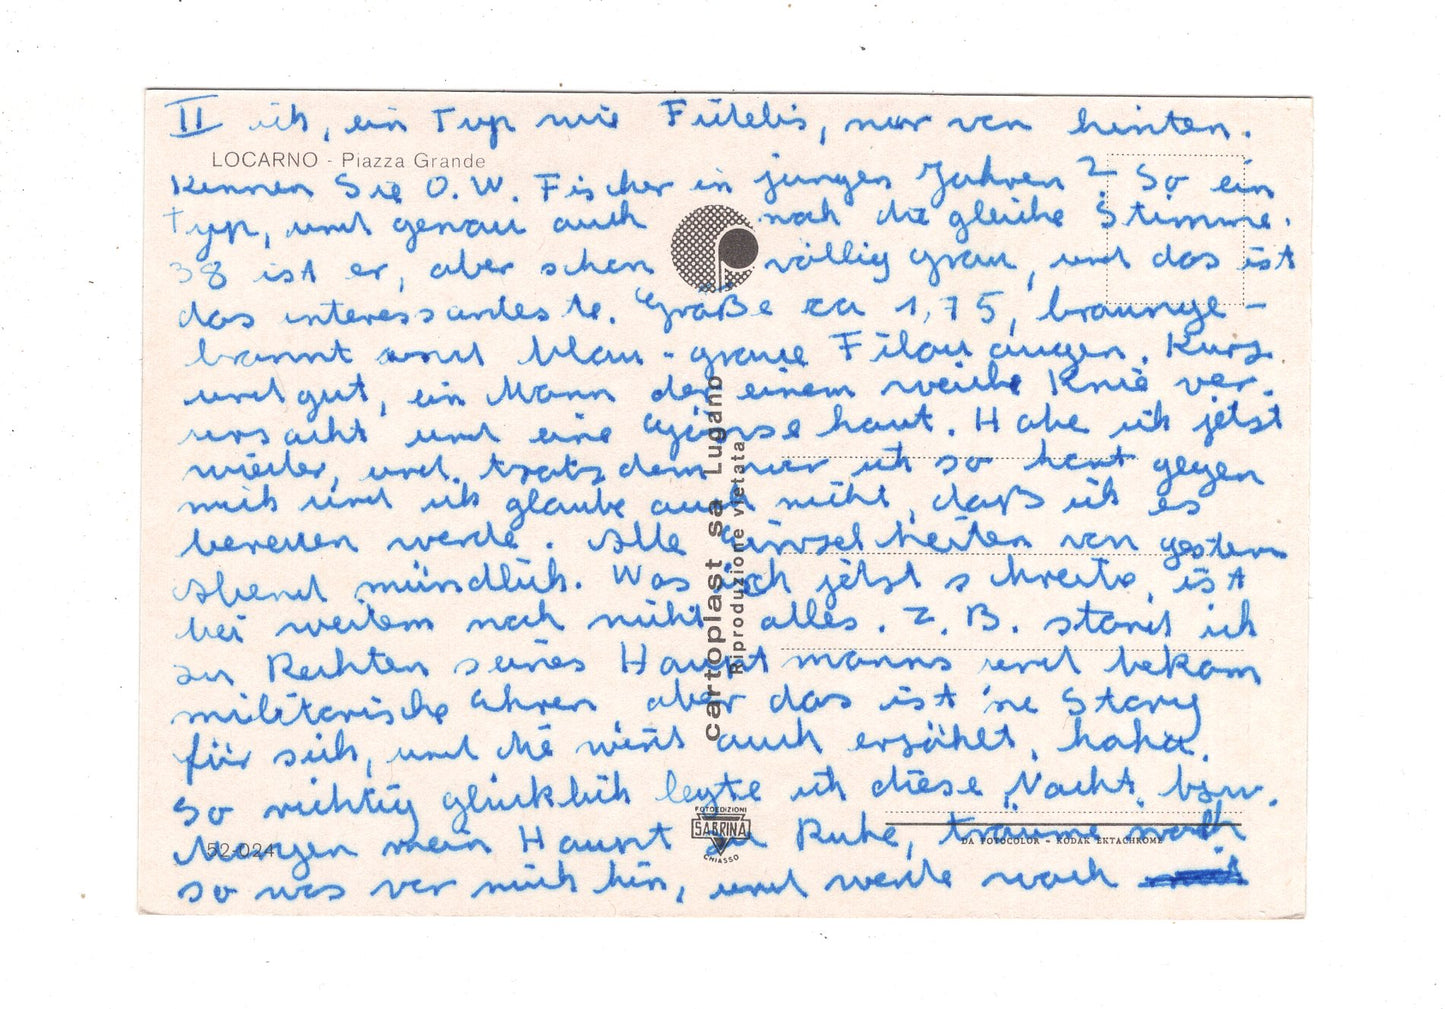 II ich, ein Typ wie Fütelis, nur von hinten.
LOCARNO - Piazza Grande
Kennen Sie O.W. Fischer in jungen Jahren? So ein
Typ, und genau auch noch die gleiche Stimme.
38 ist er, aber schon völlig grau, und das ist
das interessanteste. Größe ca 1,75, braunge-
brannt und blau-graue Filouaugen. Kurz
und gut, ein Mann der einem weiche Knie ver-
ursacht und eine Gänsehaut. Habe ich jetzt
wieder, und trotzdem war ich so hart gegen
mich und ich glaube auch nicht, daß ich es
bereuen werde. Alle Einzelheiten von gestern
Abend mündlich. Was ich jetzt schreibe, ist
bei weitem noch nicht alles. Z.B. stand ich
zu Rechten seines Hauptmanns und bekam
militärische Ehren, aber das ist 'ne Story
für sich, und die wird auch erzählt, haha.
So richtig glücklich legte ich diese "Nacht" bzw.
Morgen mein Haupt zu Ruhe, träume noch
so was vor mich hin, und werde wach
52-024
cartoplast sa Lugano
Riproduzione vietata
FOTOEDIZIONI
SABRINA
CHIASSO
DA FOTOCOLOR - KODAK EKTACHROME